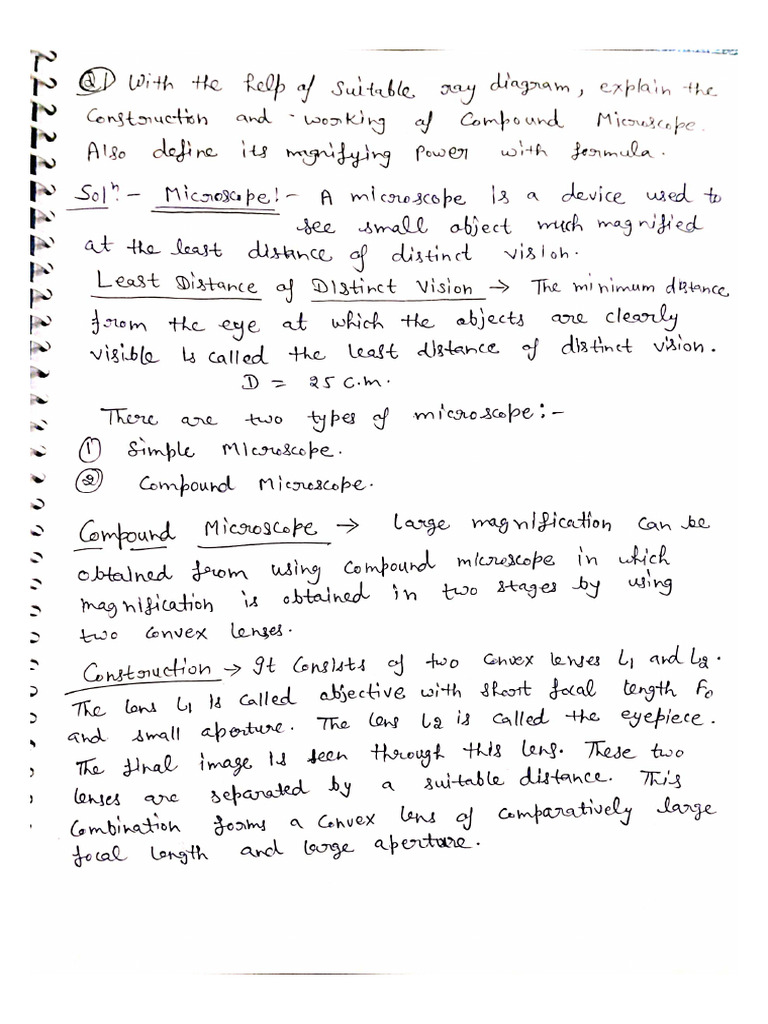 Q1) With the help of suitable ray diagram, explain the
Construction and working of Compound Microscope.
Also define its magnifying power with formula.
Solⁿ:- Microscope:- A microscope is a device used to
see small object much magnified
at the least distance of distinct vision.
Least Distance of Distinct Vision → The minimum distance
from the eye at which the objects are clearly
visible is called the least distance of distinct vision.
D = 25 c.m.
There are two types of microscope:-
① Simple Microscope.
② Compound Microscope.
Compound Microscope → Large magnification can be
obtained from using compound microscope in which
magnification is obtained in two stages by using
two convex lenses.
Construction → It consists of two convex lenses L1 and L2.
The lens L1 is called objective with short focal length Fo
and small aperture. The lens L2 is called the eyepiece.
The final image is seen through this lens. These two
lenses are separated by a suitable distance. This
Combination forms a convex lens of comparatively large
focal length and large aperture.